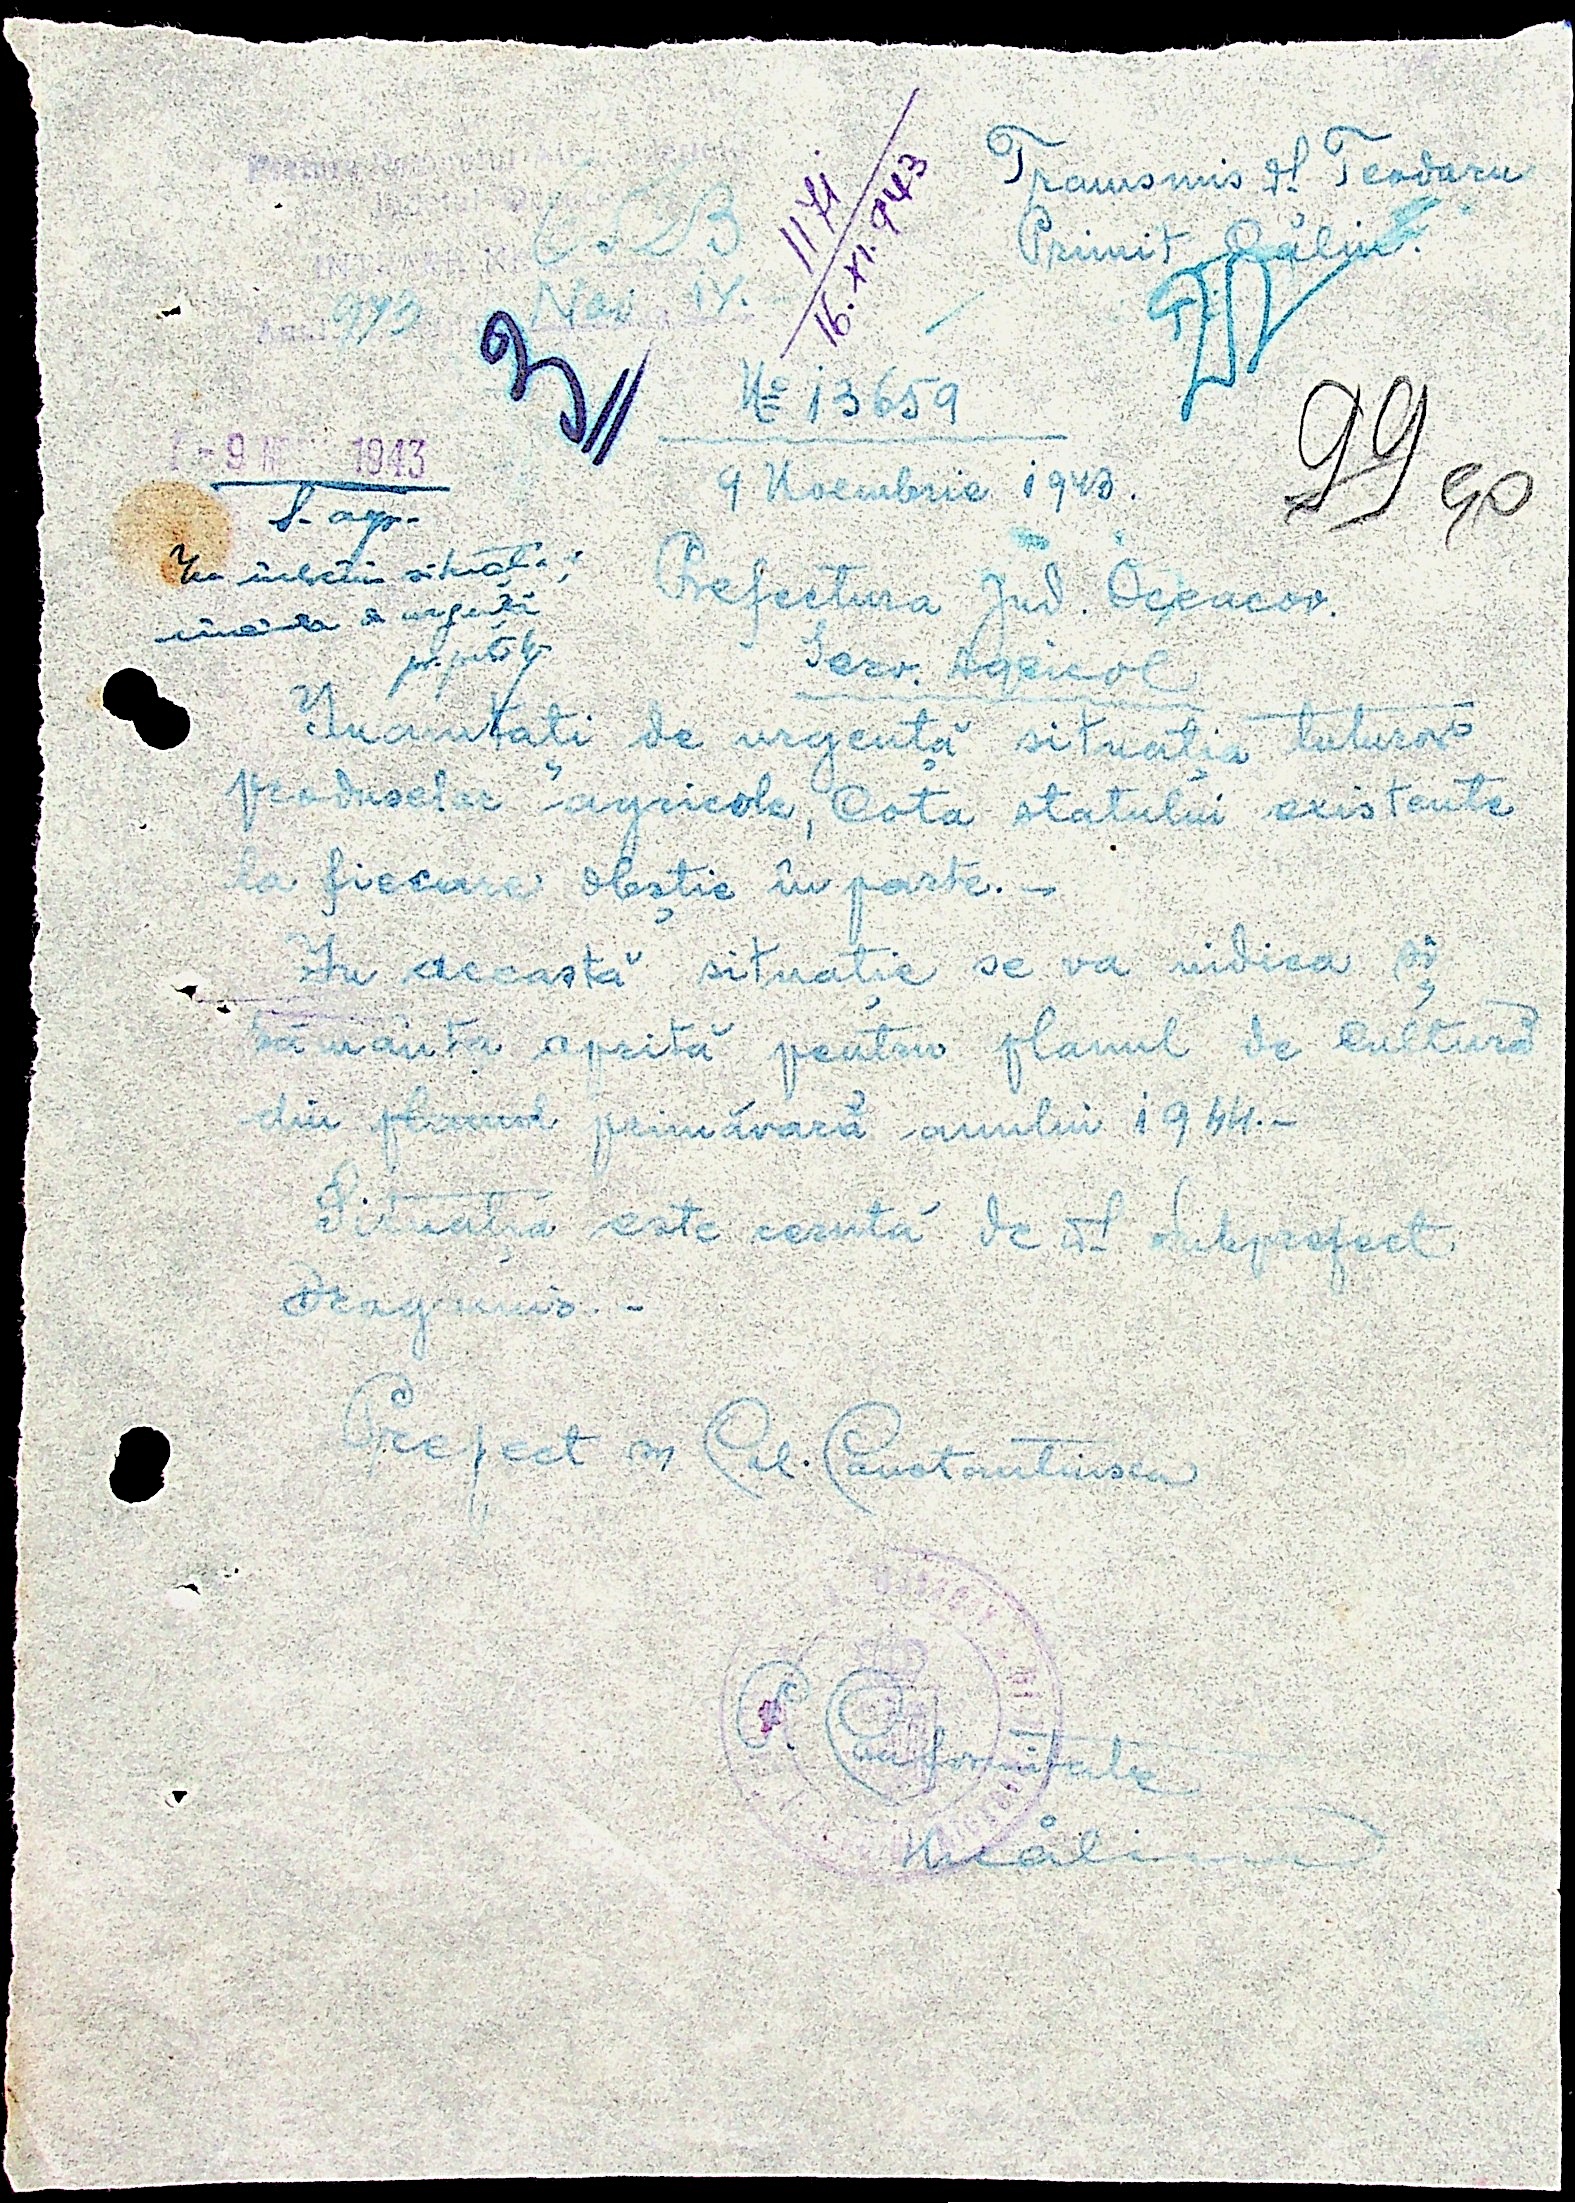 Transmis dl Teodoru
Primit Călin.
1171
16.XI.943
943 Noi 14.
Nº 13659
99 90
9 NO 1943
9 Noembrie 1943.
S. agr.
Prefectura Jud. Oceacov.
Serv. Agricol
Inaintați de urgență situația tuturor
produselor agricole, Cota statului existente
la fiecare obștie în parte. -
In această situație se va ridica și
sămânța oprită pentru planul de cultură
din planul primăvară anului 1944.-
Situația este cerută de dl subprefect
Dragomir. -
Prefect ss Col. Constantinescu
P. Conformitate
N Călin